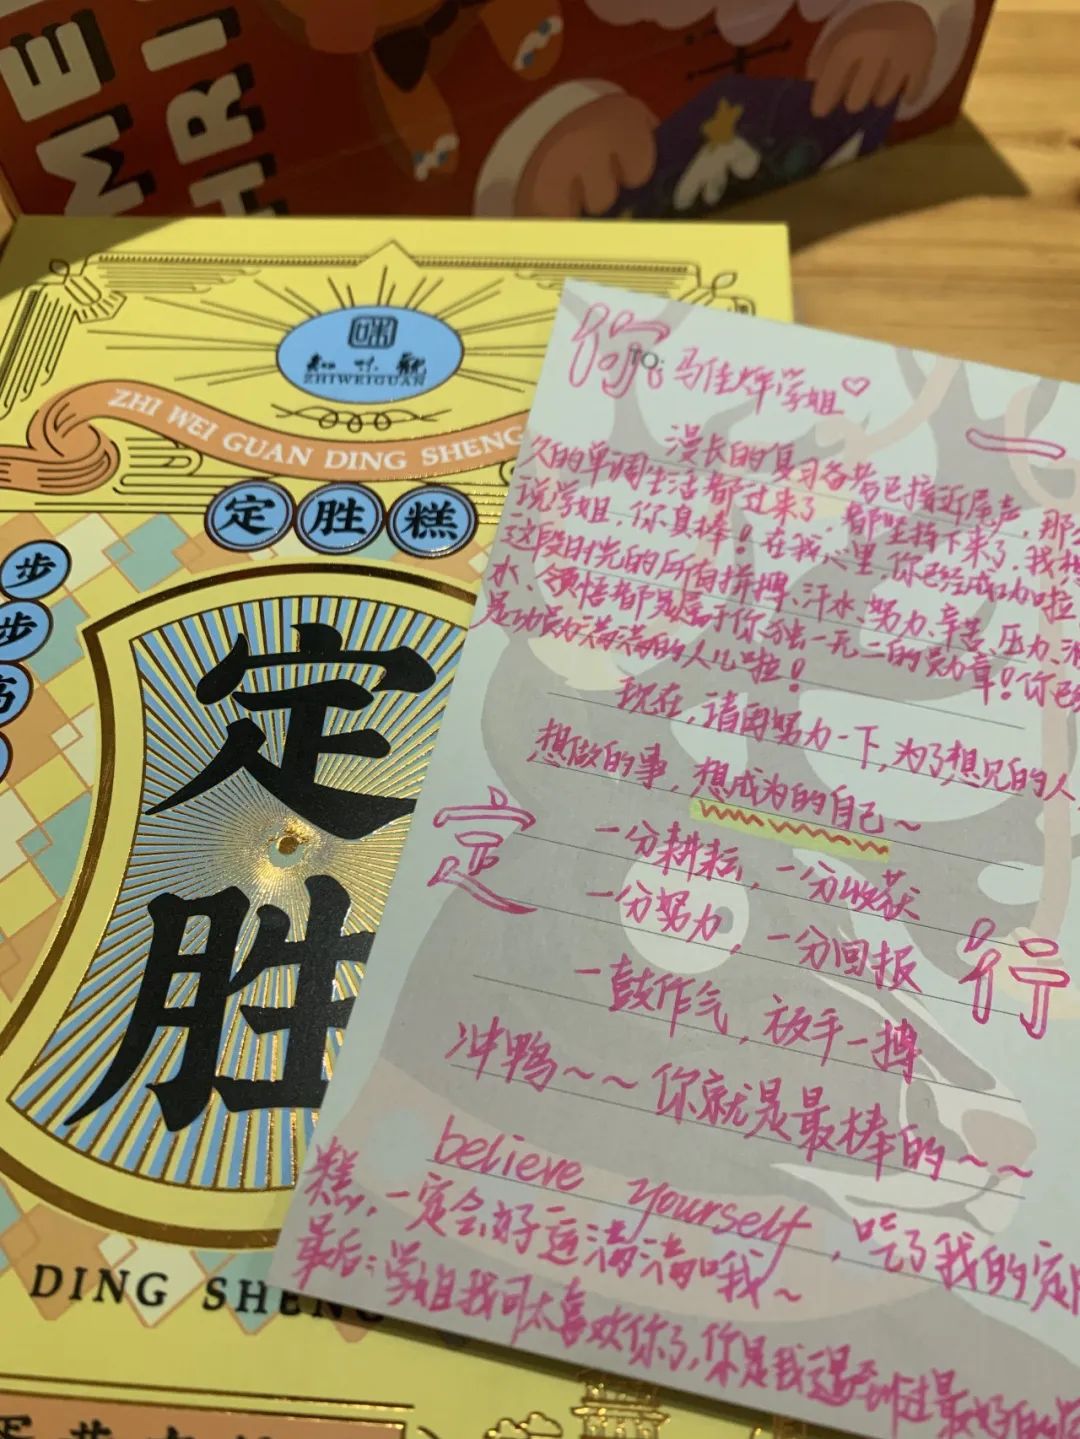 ME
HRI
知味觀
ZHIWEIGUAN
ZHI WEI GUAN DING SHENG
定胜糕
步
步
高
定
胜
DING SHENG
你
一
定
行
TO: 马佳烨学姐♡
漫长的复习备考已接近尾声，那
久的单调生活都过来了，都坚持下来了，我想
说学姐，你真棒！在我心里，你已经成功啦
这段时光的所有拼搏、汗水、努力、辛苦、压力、
水、领悟都是属于你独一无二的勋章！你已
是功勋满满的人儿啦！
现在，请再努力一下，为了想见的人，
想做的事，想成为的自己~
一分耕耘，一分收获
一分努力，一分回报
一鼓作气，放手一搏
冲鸭~~你就是最棒的~~
believe yourself，吃了我的定
糕，一定会好运满满哦~
最后：学姐我可太喜欢你了，你是我遇到过最好的